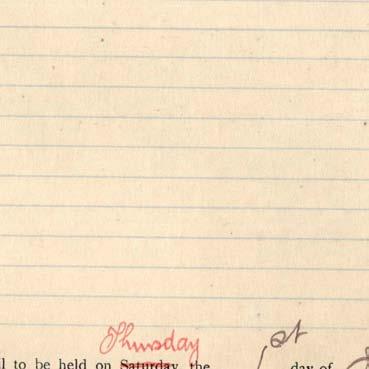 Thursday 1st
to be held on Saturday the day of